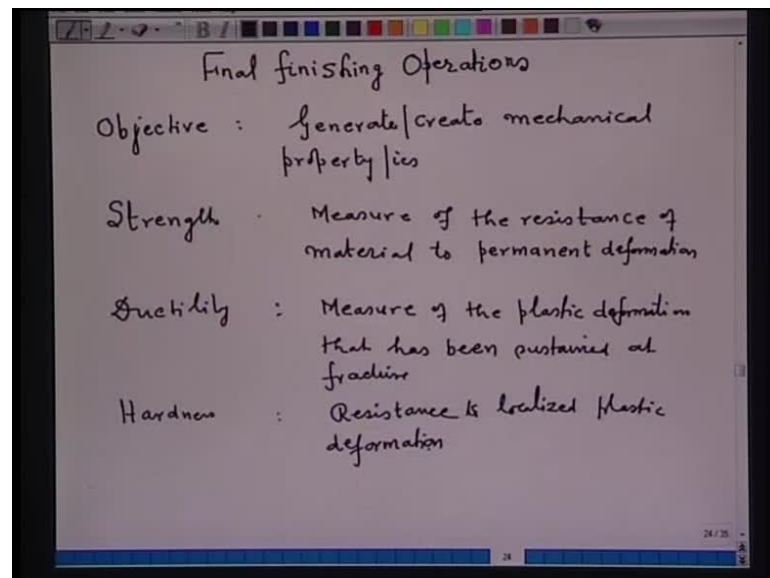 B I
Final finishing Operations
Objective : Generate/create mechanical
property/ies
Strength . Measure of the resistance of
material to permanent deformation
Ductility : Measure of the plastic deformation
that has been sustained at
fracture
Hardness : Resistance to localized plastic
deformation
24/35
24